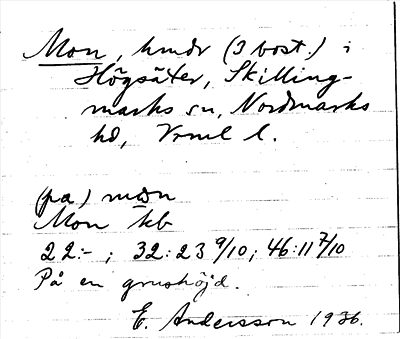 Mon, hmdr (3 bost.) i
Högsäter, Skilling-
marks sn, Nordmarks
hd, Vrml l.
(pa) mon
Mon kb
22:- ; 32:23 9/10; 46:11 7/10
På en grushöjd.
E. Andersson 1936.